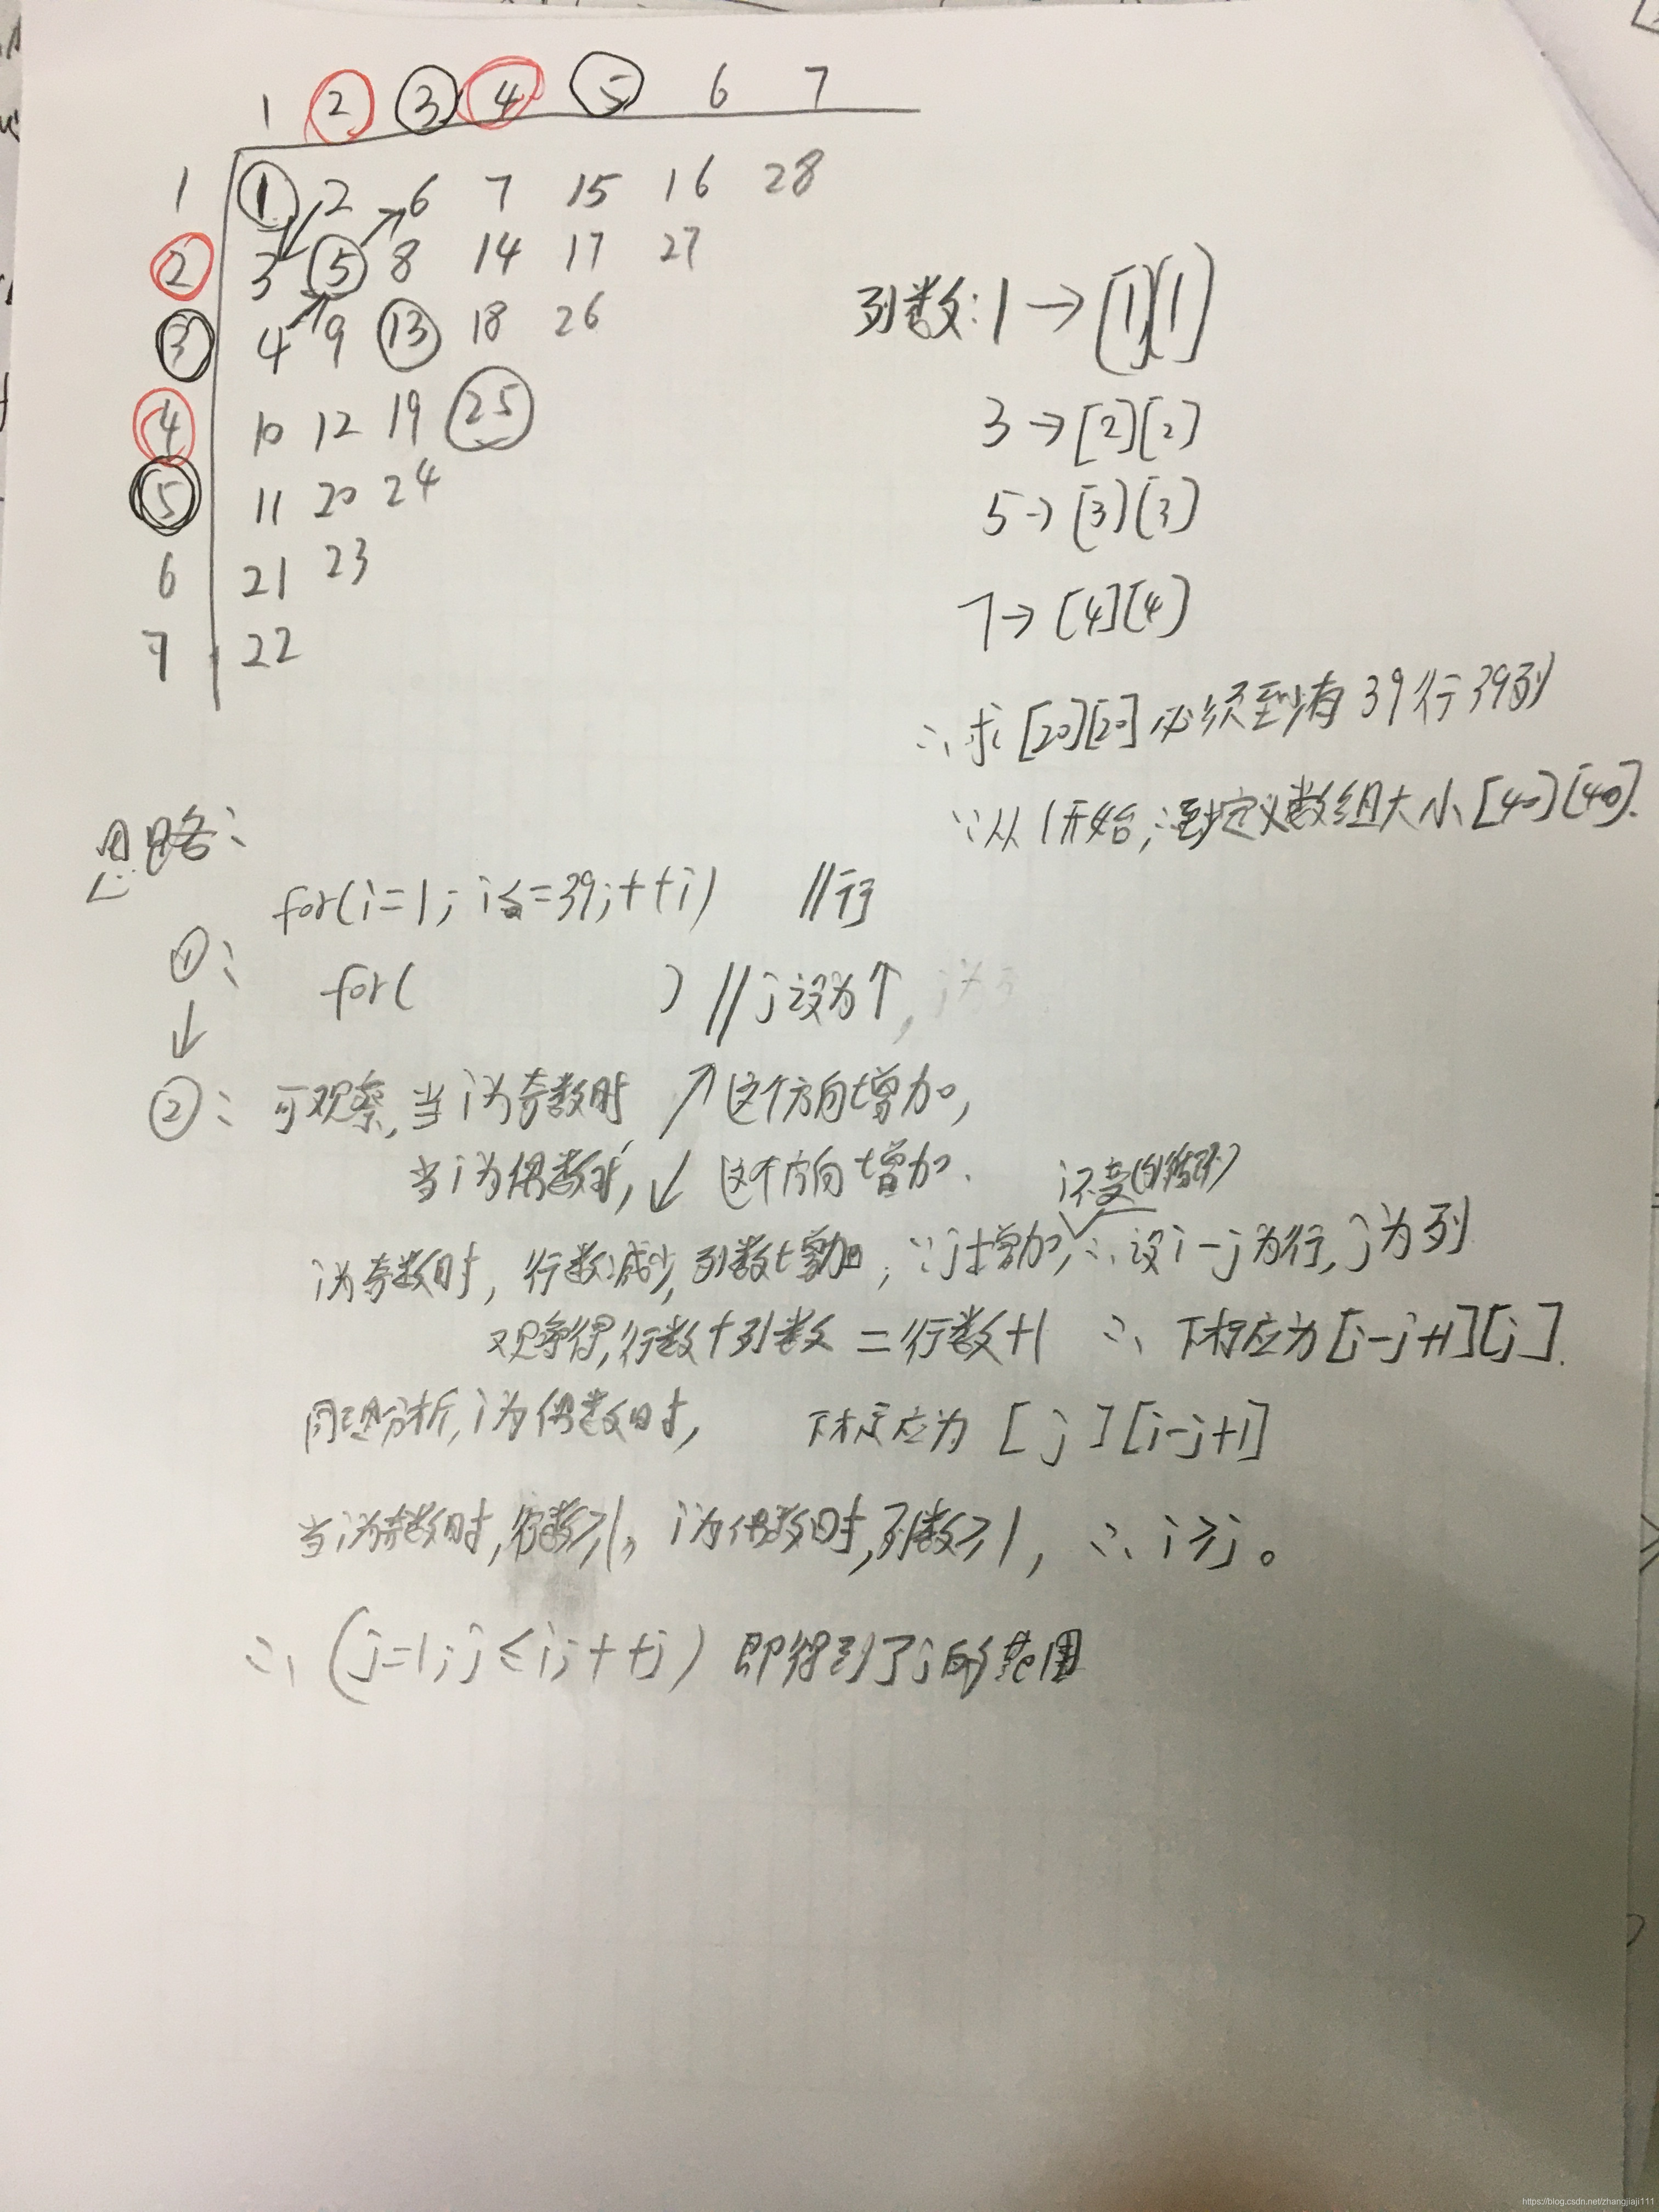 1 2 3 4 5 6 7
1 1 2 6 7 15 16 28
2 3 5 8 14 17 27
3 4 9 13 18 26
4 10 12 19 25
5 11 20 24
6 21 23
7 22
列数:1→[1][1]
3→[2][2]
5→[3][3]
7→[4][4]
∴求[20][20]必须至少有39行39列
∵从1开始,∴至少定义数组大小[40][40].
思路:
①: for(i=1; i<=39;++i) //行
for( ) //j设为↑, j为列
↓
②: 可观察,当i为奇数时 ↗这个方向增加,
当i为偶数时,↙ 这个方向增加.
i为奇数时,行数减少,列数增加,∵j增加,∴设i-j为行,j为列
i不变
观察得,行数+列数=行数+1 ∴ 下标应为[i-j+1][j].
同理分析,i为偶数时, 下标应为[j][i-j+1]
当i为奇数时,行数≥1, i为偶数时,列数≥1, ∴ i≥j。
∴ (j=1;j≤i;++j) 即得到了j的范围
https://blog.csdn.net/zhangjiaji111